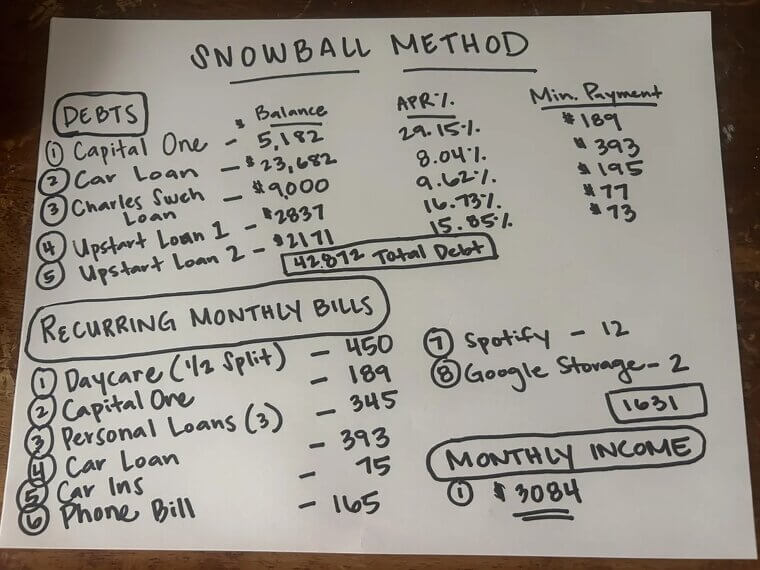 SNOWBALL METHOD
DEBTS $ Balance APR% Min. Payment
① Capital One - 5,182 29.15% $189
② Car Loan - $23,682 8.04% $393
③ Charles Swch Loan - $9,000 9.62% $195
④ Upstart Loan 1 - $2837 16.73% $77
⑤ Upstart Loan 2 - $2171 15.85% $73
42,872 Total Debt
RECURRING MONTHLY BILLS
① Daycare (1/2 Split) - 450
② Capital One - 189
③ Personal Loans (3) - 345
④ Car Loan - 393
⑤ Car Ins - 75
⑥ Phone Bill - 165
⑦ Spotify - 12
⑧ Google Storage - 2
1631
MONTHLY INCOME
① $3084